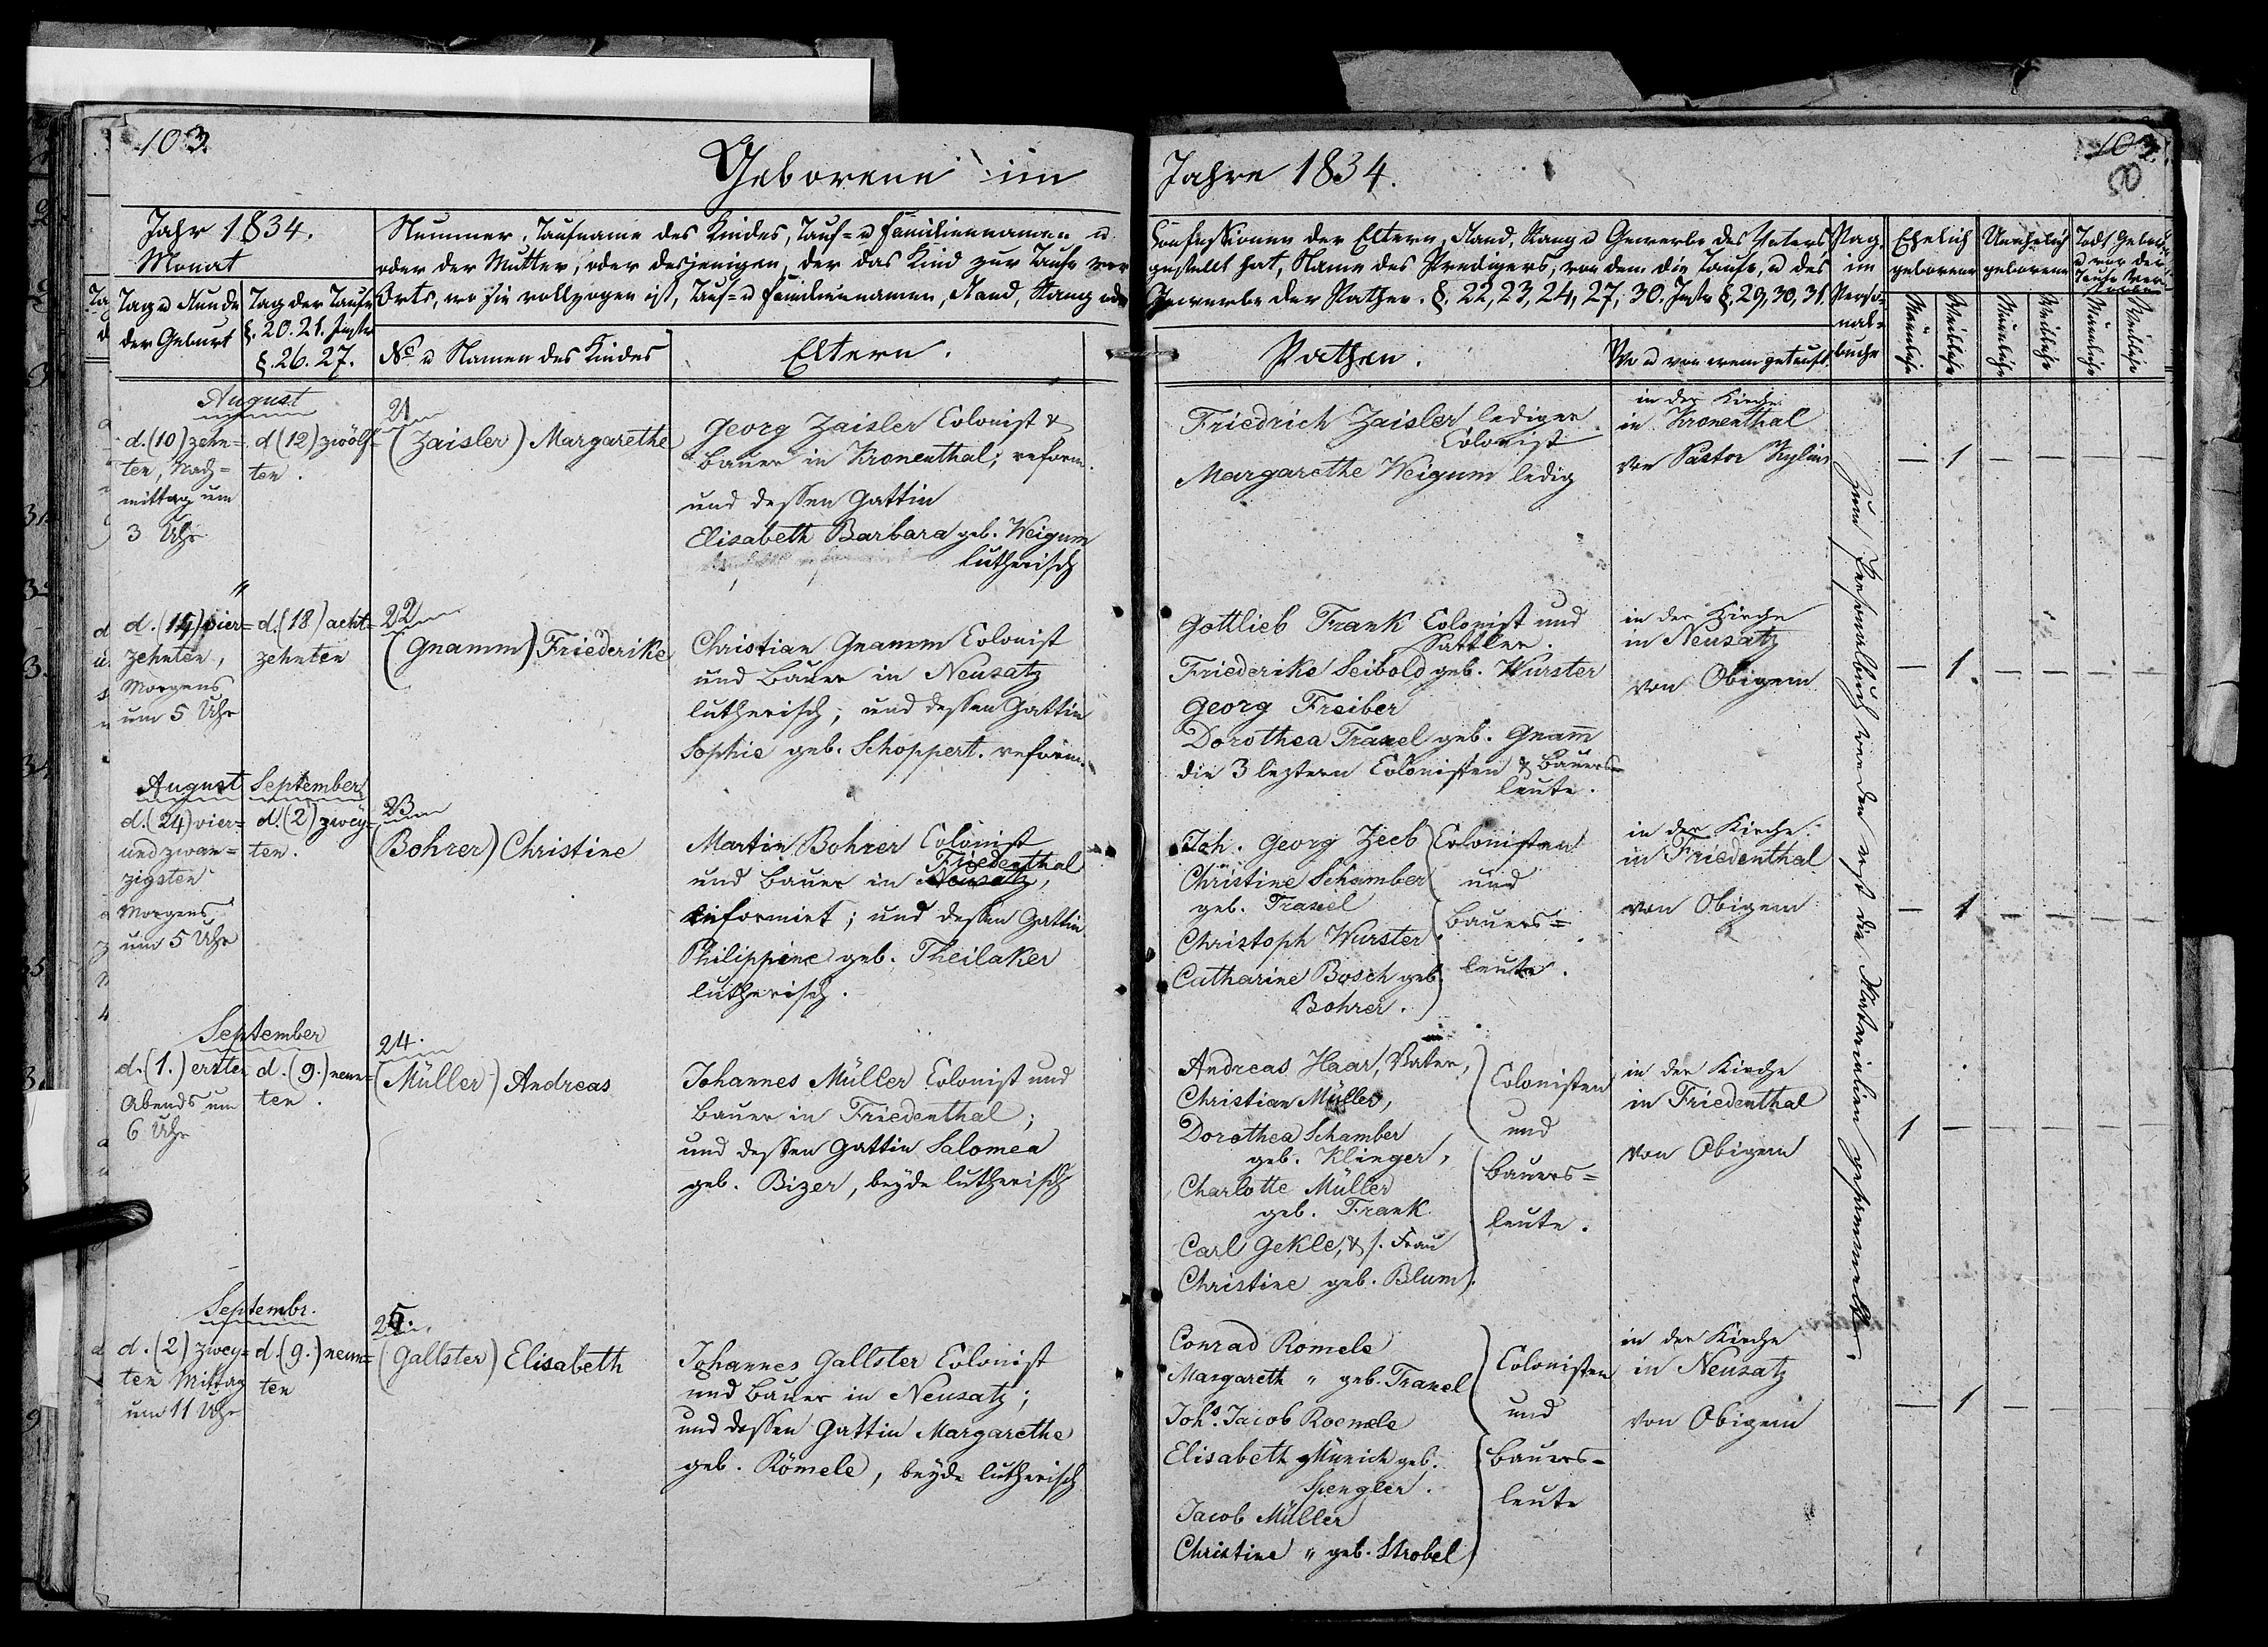 103.
Geborene im
Jahre 1834.
50
Jahr 1834.
Monat
Tag u Stunde
der Geburt
Tag der Taufe
§. 20. 21. Instr
§. 26. 27.
Nummer, Taufname des Kindes, Tauf= u Familiennamen u
oder der Mutter, oder desjenigen, der das Kind zur Taufe vor
Orts, wo sie vollzogen ist, Tauf= u Familiennamen, Stand, Rang oder
No u Namen des Kindes
Eltern.
Confessionen der Eltern, Stand, Rang u Gewerbe des Vaters
gestellt hat, Name des Predigers, von dem die Taufe, u des
Gewerbe der Pathen. §. 22, 23, 24, 27, 30. Instr §. 29, 30, 31.
Pathen.
Wo u von wem getauft.
Pag.
im
Perso=
nal=
buche
Ehelich
geborene
Unehelich
geborene
Todt Gebor
u vor der
Taufe Ver=
Männliche
Weibliche
Männliche
Weibliche
Männliche
Weibliche
August
d. (10) zehn=
ten, Nach=
mittag um
3 Uhr
d (12) zwölf=
ten.
21
(Zaisler) Margarethe
Georg Zaisler Colonist &
Bauer in Kronenthal; reform.
und dessen Gattin
Elisabeth Barbara geb. Weigum
lutherisch
Friedrich Zaisler lediger
Colonist
Margarethe Weigum ledig
in der Kirche
in Kronenthal
von Pastor Kylius
— 1 — — — —
"
d. (14) vier=
zehnten,
Morgens
um 5 Uhr
d. (18) acht=
zehnten
22
(Gnamm) Friederike
Christian Gnamm Colonist
und Bauer in Neusatz
lutherisch; und dessen Gattin
Sophie geb. Schoppert. reform.
Gottlieb Frank Colonist und
Sattler.
Friederike Seibold geb. Wurster
Georg Freiber
Dorothea Traxel geb. Gnam̅
die 3 leztern Colonisten & Bauers=
leute.
in der Kirche
in Neusatz
von Obigem
— 1 — — — —
August
d. (24) vier=
und zwan=
zigsten
Morgens
um 5 Uhr
September
d. (2) zwey=
ten.
23
(Bohrer) Christine
Martin Bohrer Colonist
Friedenthal
und Bauer in Neusatz,
reformirt; und dessen Gattin
Philippine geb. Theilaker
lutherisch.
Joh. Georg Zeeb
Christine Schamber
geb. Traxel
Christoph Wurster
Catharine Bosch geb.
Bohrer.
Colonisten
und
Bauers=
leute.
in der Kirche
in Friedenthal
von Obigem
— 1 — — — —
September
d. (1.) ersten
Abends um
6 Uhr
d. (9.) neun=
ten.
24.
(Müller) Andreas
Johannes Müller Colonist und
Bauer in Friedenthal;
und dessen Gattin Salomea
geb. Bizer, beyde lutherisch
Andreas Haar, Vater,
Christian Müller,
Dorothea Schamber
geb. Klinger,
Charlotte Müller
geb. Frank
Carl Gekle, & s. Frau
Christine geb. Blum.
Colonisten
und
Bauers=
leute.
in der Kirche
in Friedenthal
von Obigem
1 — — — — —
Septembr.
d. (2) zwey=
ten Mittag
um 11 Uhr
d. (9.) neun=
ten
25.
(Gallster) Elisabeth
Johannes Gallster Colonist
und Bauer in Neusatz;
und dessen Gattin Margarethe
geb. Römele, beyde lutherisch
Conrad Romele
Margareth " geb. Traxel
Johs. Jacob Roemele
Elisabeth Münich geb.
Spengler.
Jacob Müller
Christine " geb. Strobel
Colonisten
und
Bauers=
leute
in der Kirche
in Neusatz
von Obigem
— 1 — — — —
Zum Personalbuch werden erst die Materialien gesammelt.